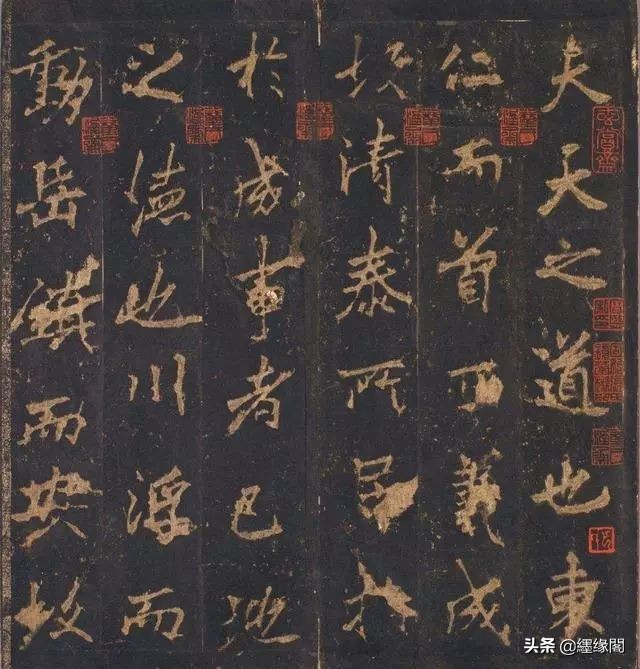 夫天之道也東
仁而首西義成
故清泰所居指
於成事者已地
之德也川浮而
動岳鎮而安故
头条 @纆缘閣